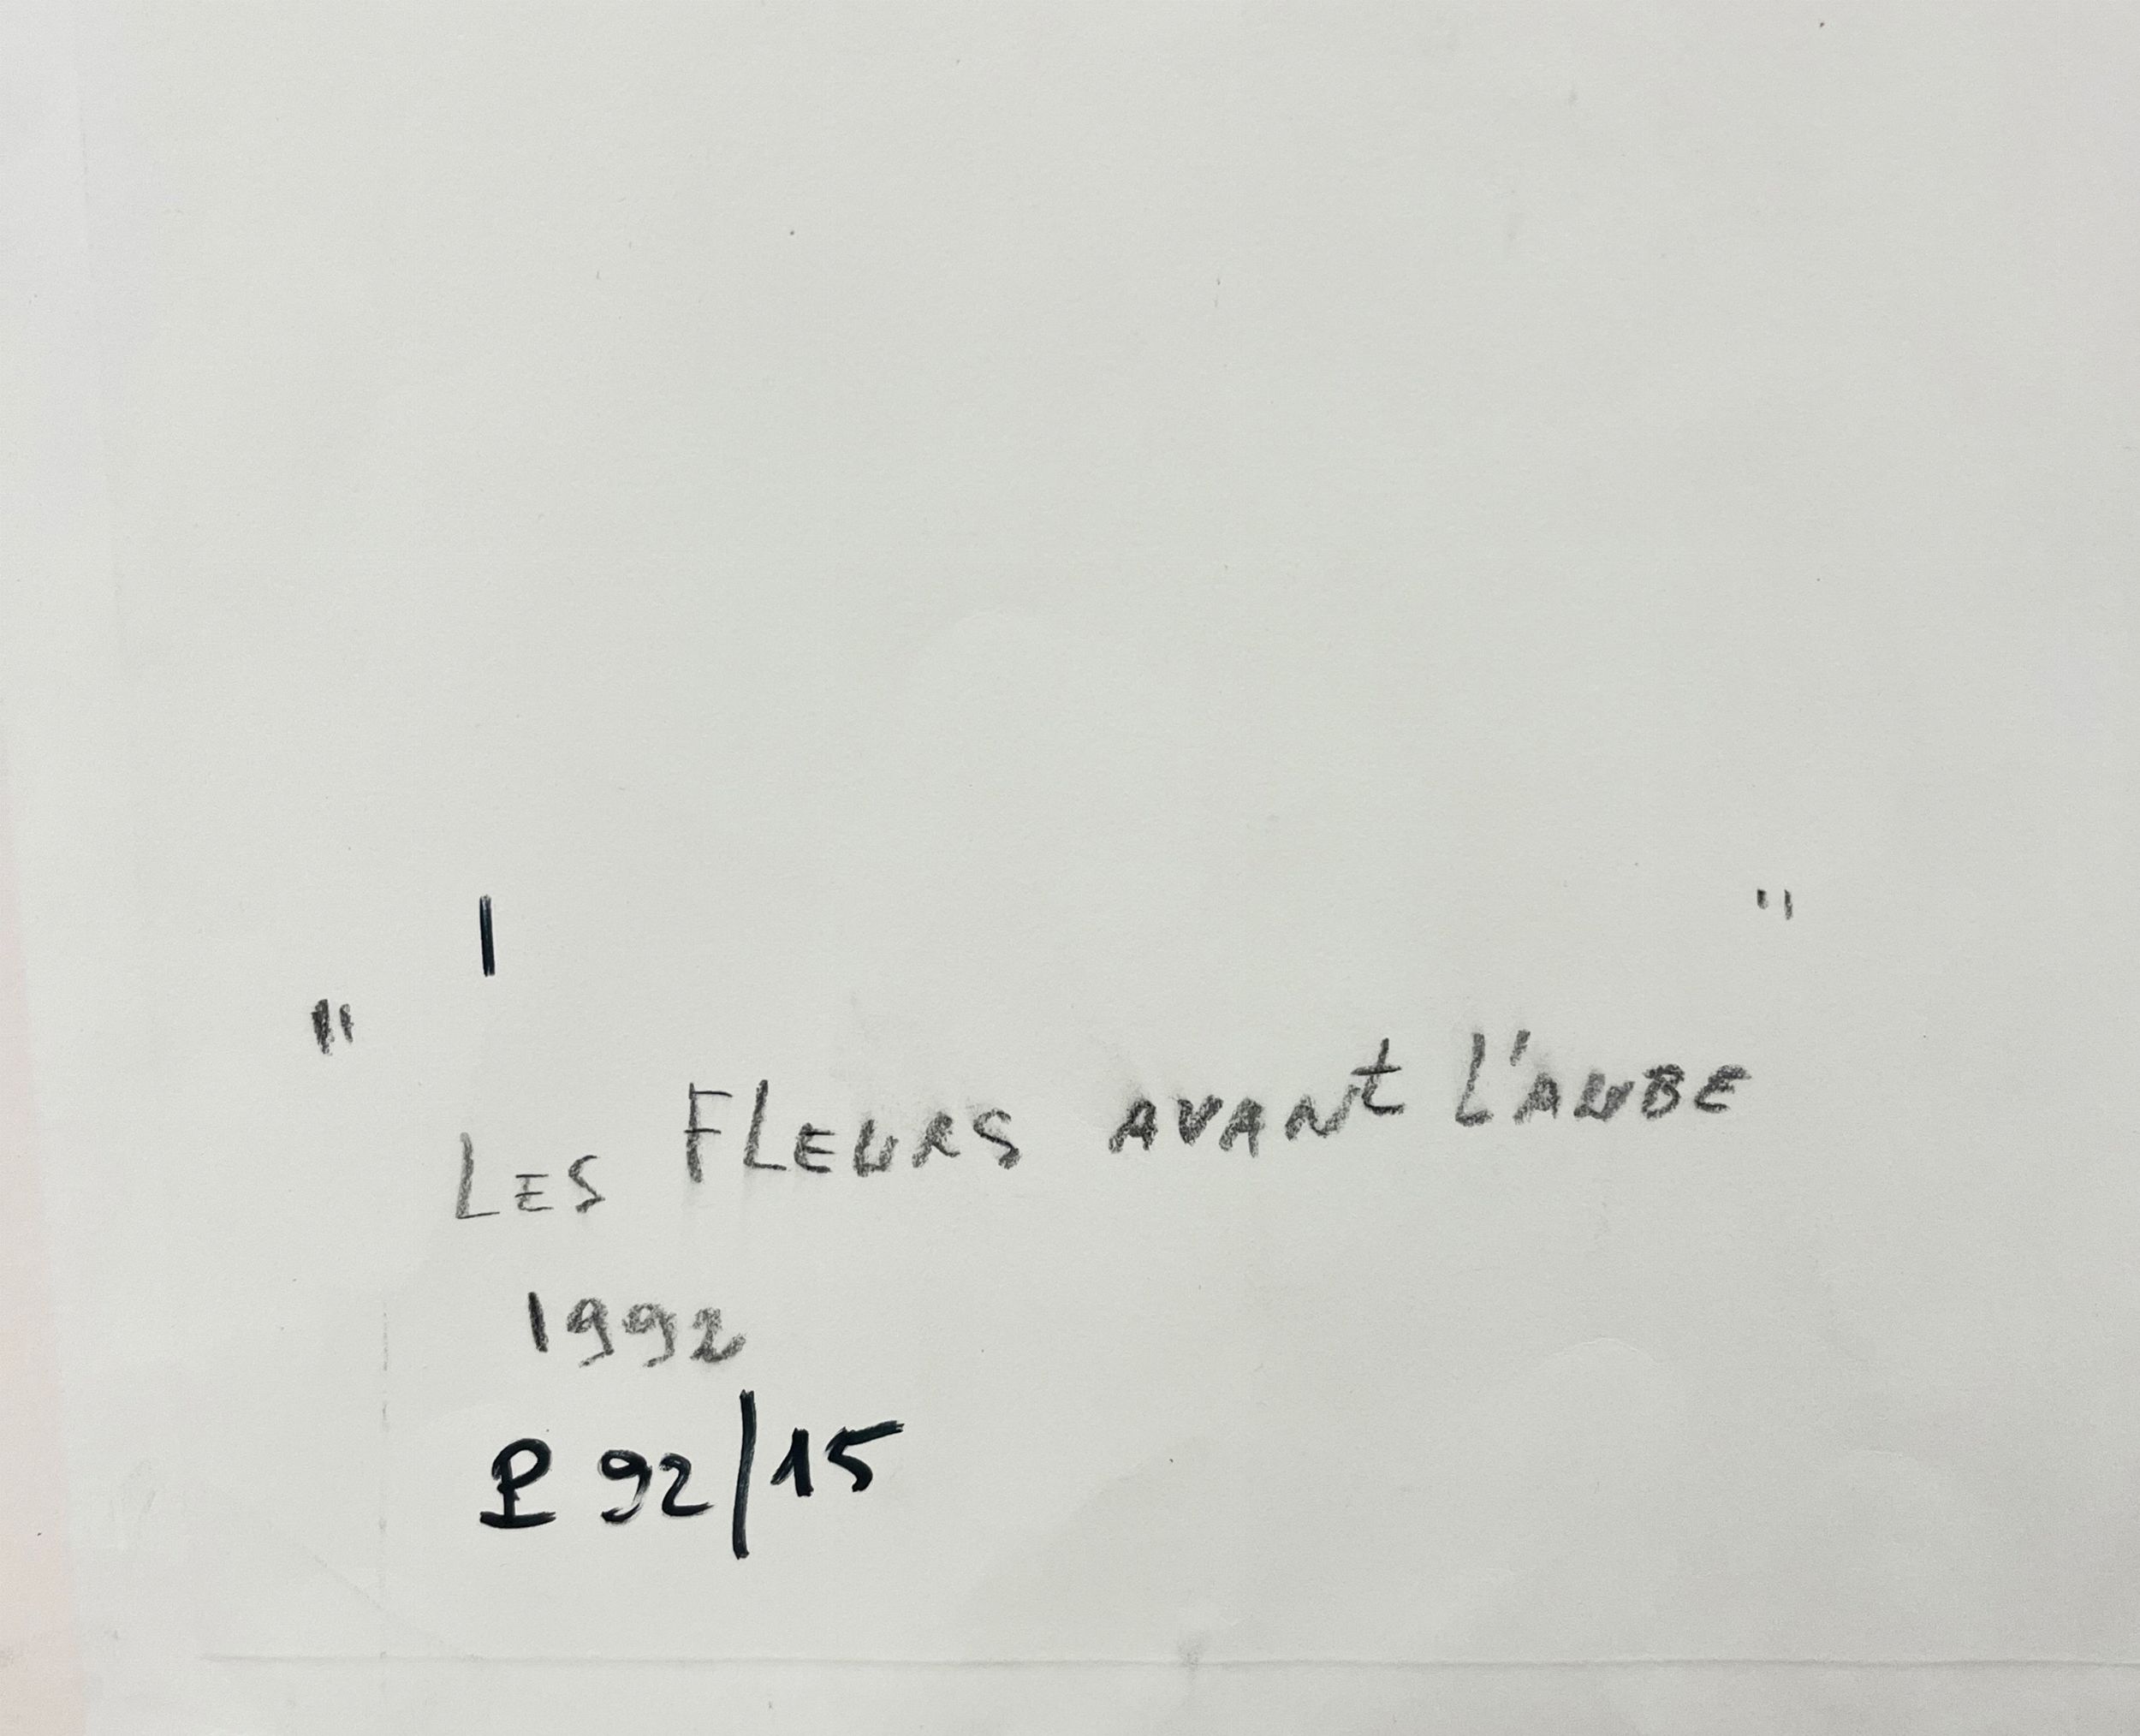 I
" LES FLEURS AVANt L'AUBE "
1992
P 92/15